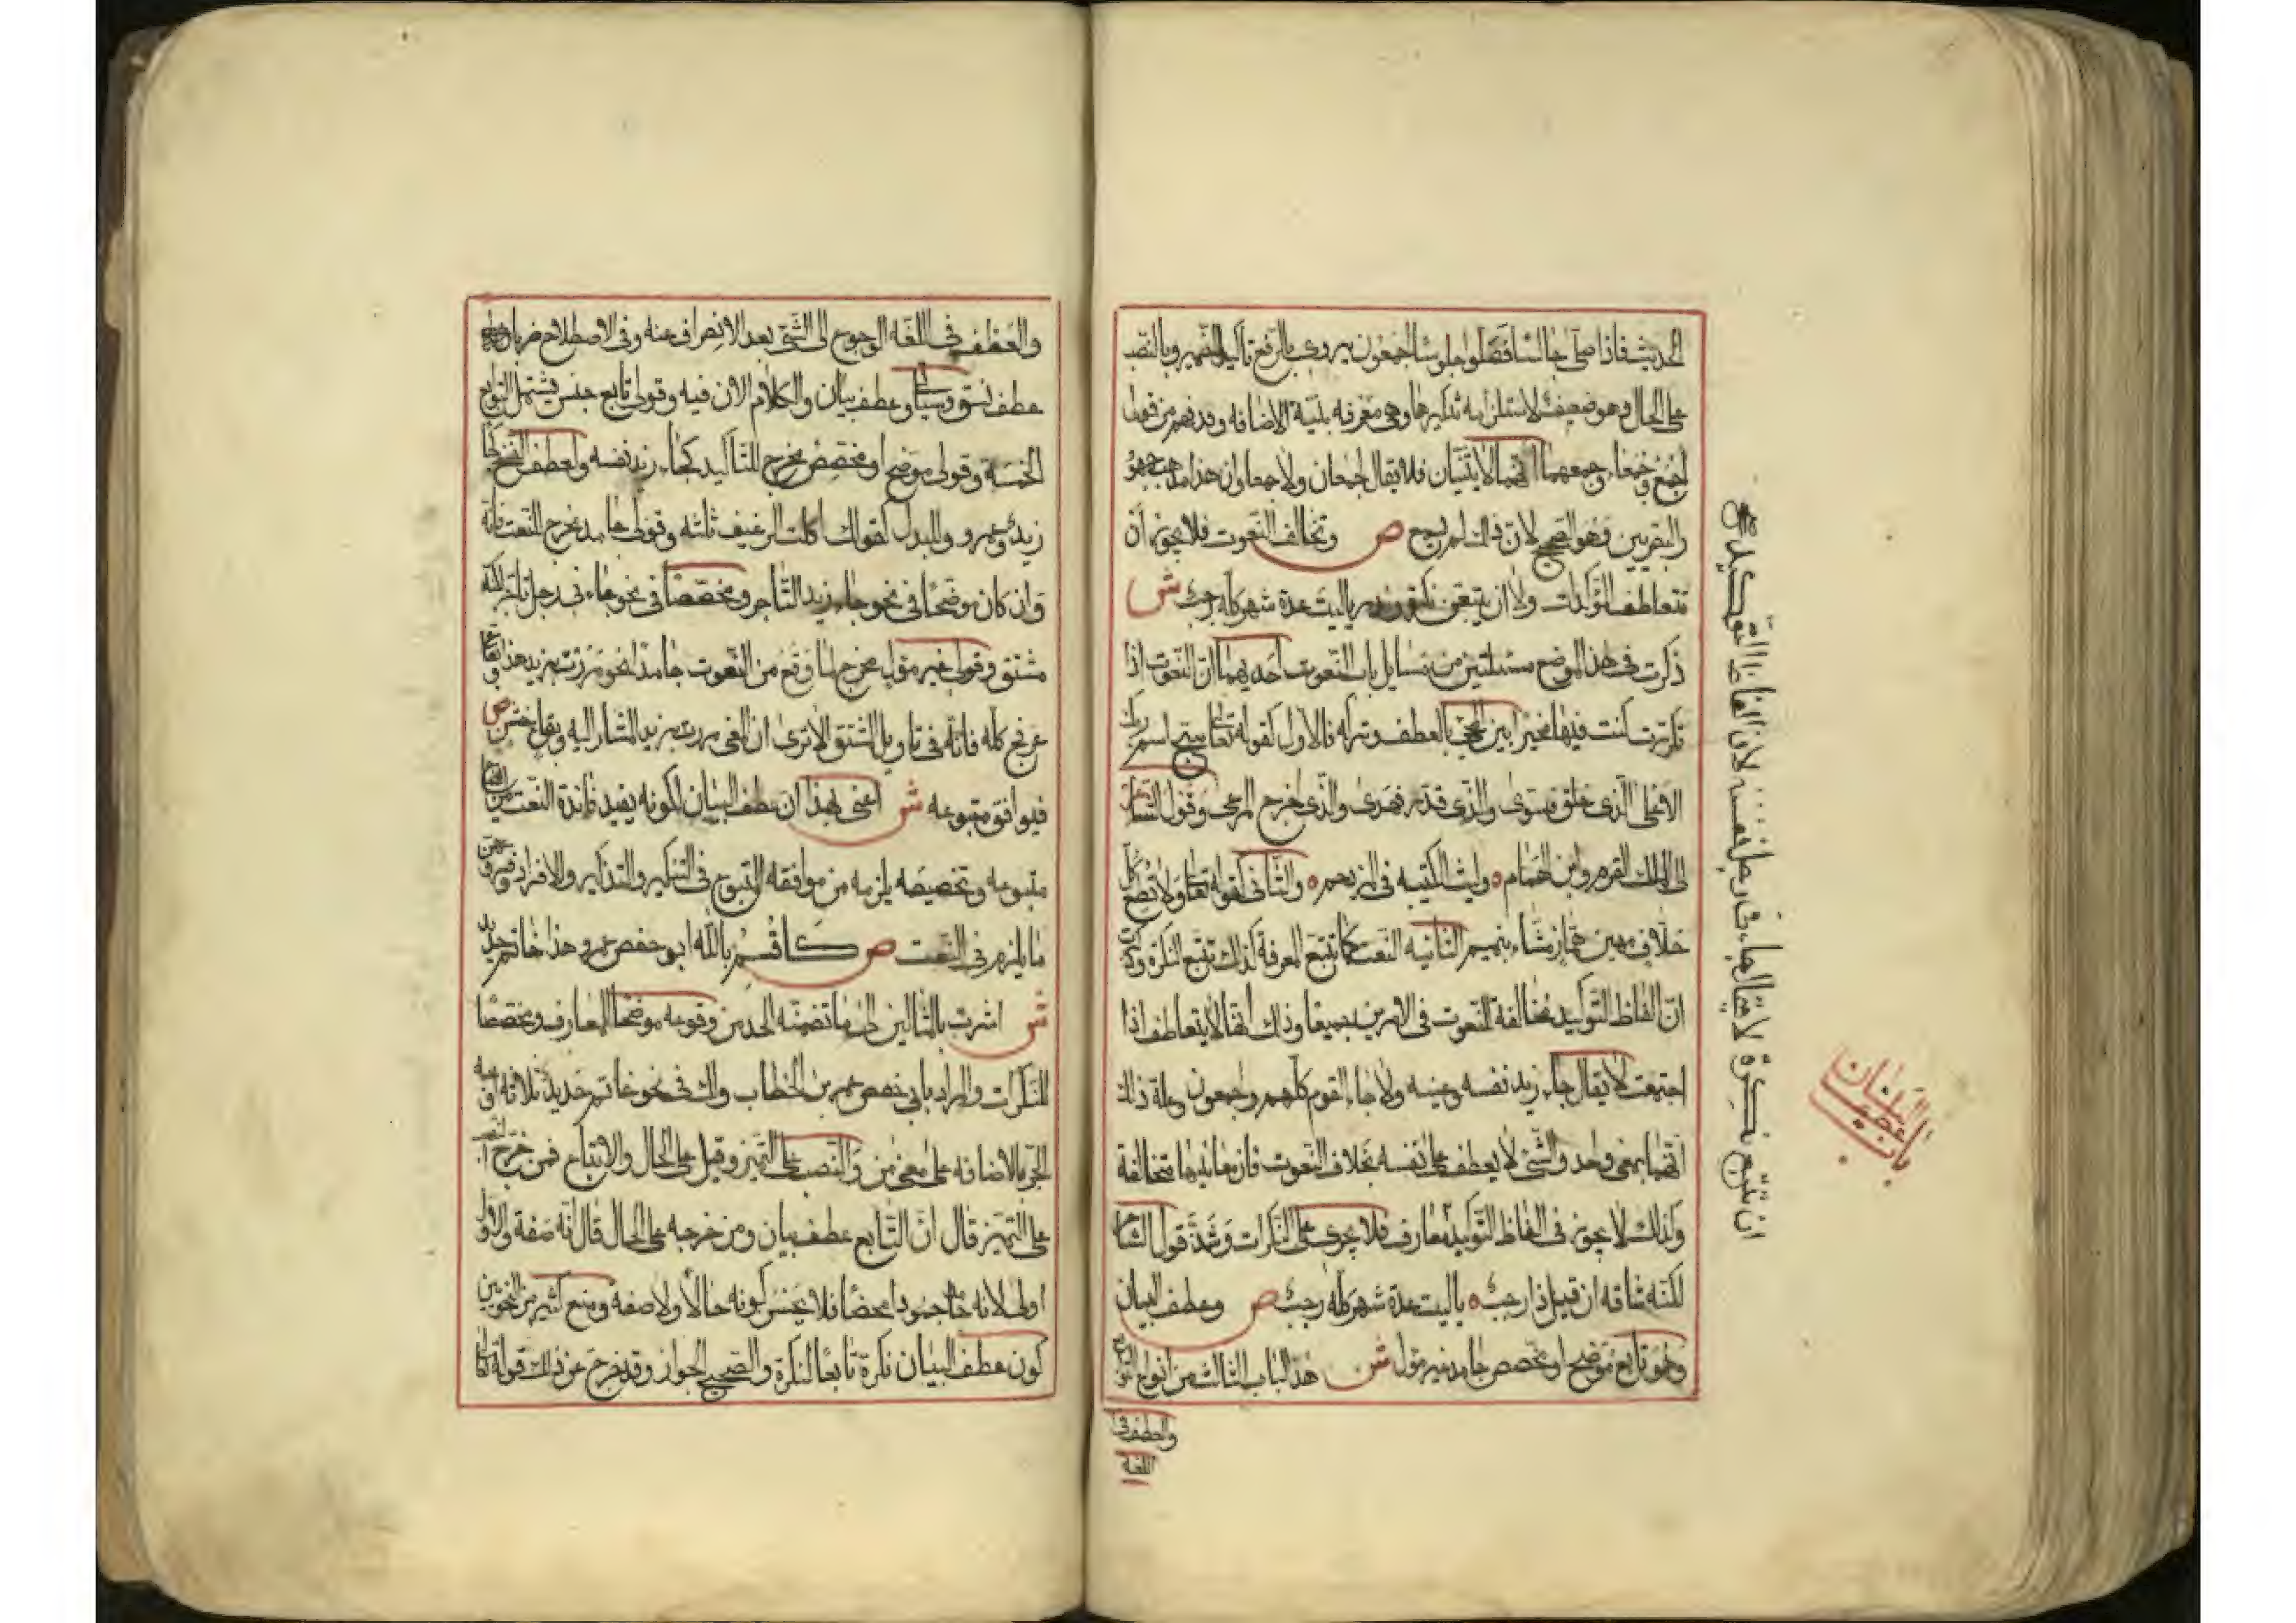 الحديث فاذا صلى جالسا فصلوا جلوسا اجمعون يروى بالرفع تاكيدا للضمير وبالنصب
على الحال وهو ضعيف لاستلزامه تنكيرها وهي معرفه بنية الاضافه وقد فهم من قولى
اجمع وجمعاء وجمعهما انهما لا يثنيان فلا يقال اجمعان ولا جمعاوان هذا مذهب جمهور
البصريين وهو الصحيح لان ذلك لم يسمع ص وتخالف النعوت فلا يجوز ان
تتعاطف المؤكدات ولا ان يتبعن نكرة وندر يا ليت عدة شهر كله رجب ش
ذكرت في هذا الموضع مسئلتين من مسايل باب النعوت احديهما ان النعوت اذا
تكررت كنت فيها مخيرا بين المجيء بالعطف وتركه فالاول كقوله تعالى سبح اسم ربك
الاعلى الذى خلق فسوى والذى قدر فهدى والذى اخرج المرعى وقول الشاعر
الى الملك القرم وابن الهمام ه وليث الكتيبه فى المزدحم ه والثانى كقوله تعالى ولا تطع كل
حلاف مهين هماز مشاء بنميم الثانيه النعت كما تتبع المعرفة كذلك تتبع النكرة وذكرت
ان الفاظ التوكيد مخالفة للنعوت فى الامرين جميعا وذلك انها لا يتعاطف اذا
اجتمعت لا يقال جاء زيد نفسه وعينه ولا جاء القوم كلهم واجمعون وعلة ذلك
انها بمعنى واحد والشئ لا يعطف على نفسه بخلاف النعوت فان معانيها متخالفة
وكذلك لا يجوز فى الفاظ التوكيد معارف فلا يجرى على النكرات وشذ قول الشاعر
لكنه شاقه ان قيل ذا رجب ه يا ليت عدة شهر كله رجب ص وعطف البيان
وهو تابع موضح او مخصص جامد غير مؤل ش هذا الباب الثالث من انواع التوابع
والعطف فى
اللغه
لان الفاظ التوكيد
لا يقال جاء رجل نفسه
ان تتبع نكرة
باب عطف البيان
والعطف فى اللغه الرجوع الى الشئ بعد الانصراف عنه وفى الاصطلاح ضربان
عطف نسق وسياتى وعطف بيان والكلام الان فيه وقولى تابع جنس يشتمل التوابع
الخمسة وقولى موضح او مخصص مخرج للتاكيد كجاء زيد نفسه ولعطف النسق كجاء
زيد وعمرو وللبدل كقولك اكلت الرغيف ثلثه وقولى جامد مخرج للنعت فانه
وان كان موضحا فى نحو جاء زيد التاجر ومخصصا فى نحو جاءنى رجل تاجر لكنه
مشتق وقولى غير مؤل مخرج لما وقع من النعوت جامدا نحو مررت بزيد هذا وبقاع
عرفج كله فانه فى تاويل المشتق الا ترى ان المعنى مررت بزيد المشار اليه وبقاع خشن ص
فيوافق متبوعه ش اعنى بهذا ان عطف البيان لكونه يفيد فائدة النعت من ايضاح
متبوعه وتخصيصه يلزمه من موافقه المتبوع فى التنكير والتذكير والافراد وفروعهن
ما يلزم فى النعت ص كاقسم بالله ابو حفص عمر وهذا خاتم حديد
ش اشرت بالمثالين الى ما تضمنه الحد من وقوعه موضحا للمعارف ومخصصا
للنكرات والمراد بابى حفص عمر بن الخطاب ولك فى نحو خاتم حديد ثلاثه اوجه
الجر بالاضافه على معنى من والنصب على التميز وقيل على الحال والاتباع فمن خرج النصب
على التميز قال ان التابع عطف بيان ومن خرجه على الحال قال انه صفة والاول
اولى لانه جامد جمودا محضا فلا يحسن كونه حالا ولا صفة ومنع كثير من النحويين
كون عطف البيان نكرة تابعا لنكرة والصحيح الجواز وقد خرج عن ذلك قوله تعالى